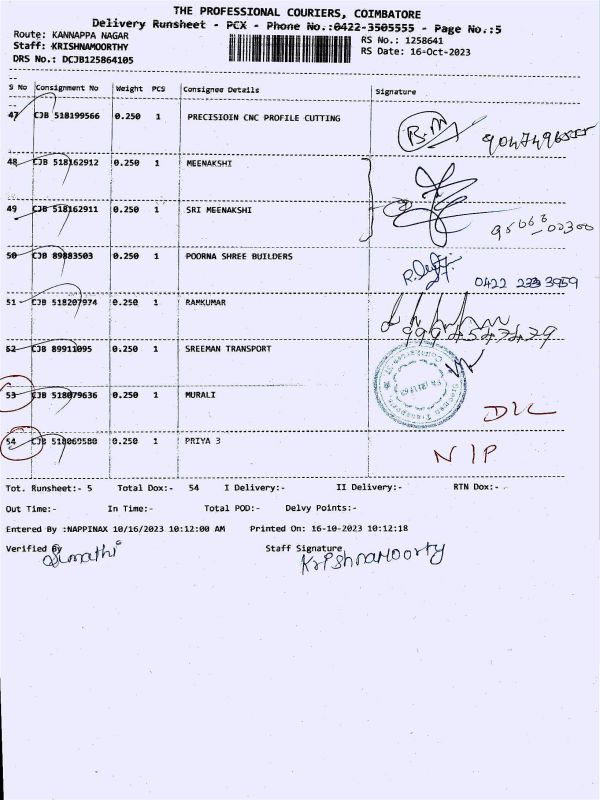 THE PROFESSIONAL COURIERS, COIMBATORE
Delivery Runsheet - PCX - Phone No.:0422-3505555 - Page No.:5
Route: KANNAPPA NAGAR RS No.: 1258641
Staff: KRISHNAMOORTHY RS Date: 16-Oct-2023
DRS No.: DCJB125864105
S No Consignment No Weight PCS Consignee Details Signature
47 CJB 518199566 0.250 1 PRECISIOIN CNC PROFILE CUTTING B.M
48 CJB 518162912 0.250 1 MEENAKSHI
49 CJB 518162911 0.250 1 SRI MEENAKSHI
50 CJB 89883503 0.250 1 POORNA SHREE BUILDERS 0422 223 3959
51 CJB 518207974 0.250 1 RAMKUMAR
52 CJB 89911095 0.250 1 SREEMAN TRANSPORT
53 CJB 518079636 0.250 1 MURALI DLC
54 CJB 518069580 0.250 1 PRIYA 3 NIP
Tot. Runsheet:- 5 Total Dox:- 54 I Delivery:- II Delivery:- RTN Dox:-
Out Time:- In Time:- Total POD:- Delvy Points:-
Entered By :NAPPINAX 10/16/2023 10:12:00 AM Printed On: 16-10-2023 10:12:18
Verified By Staff Signature
KrishnaMoorty